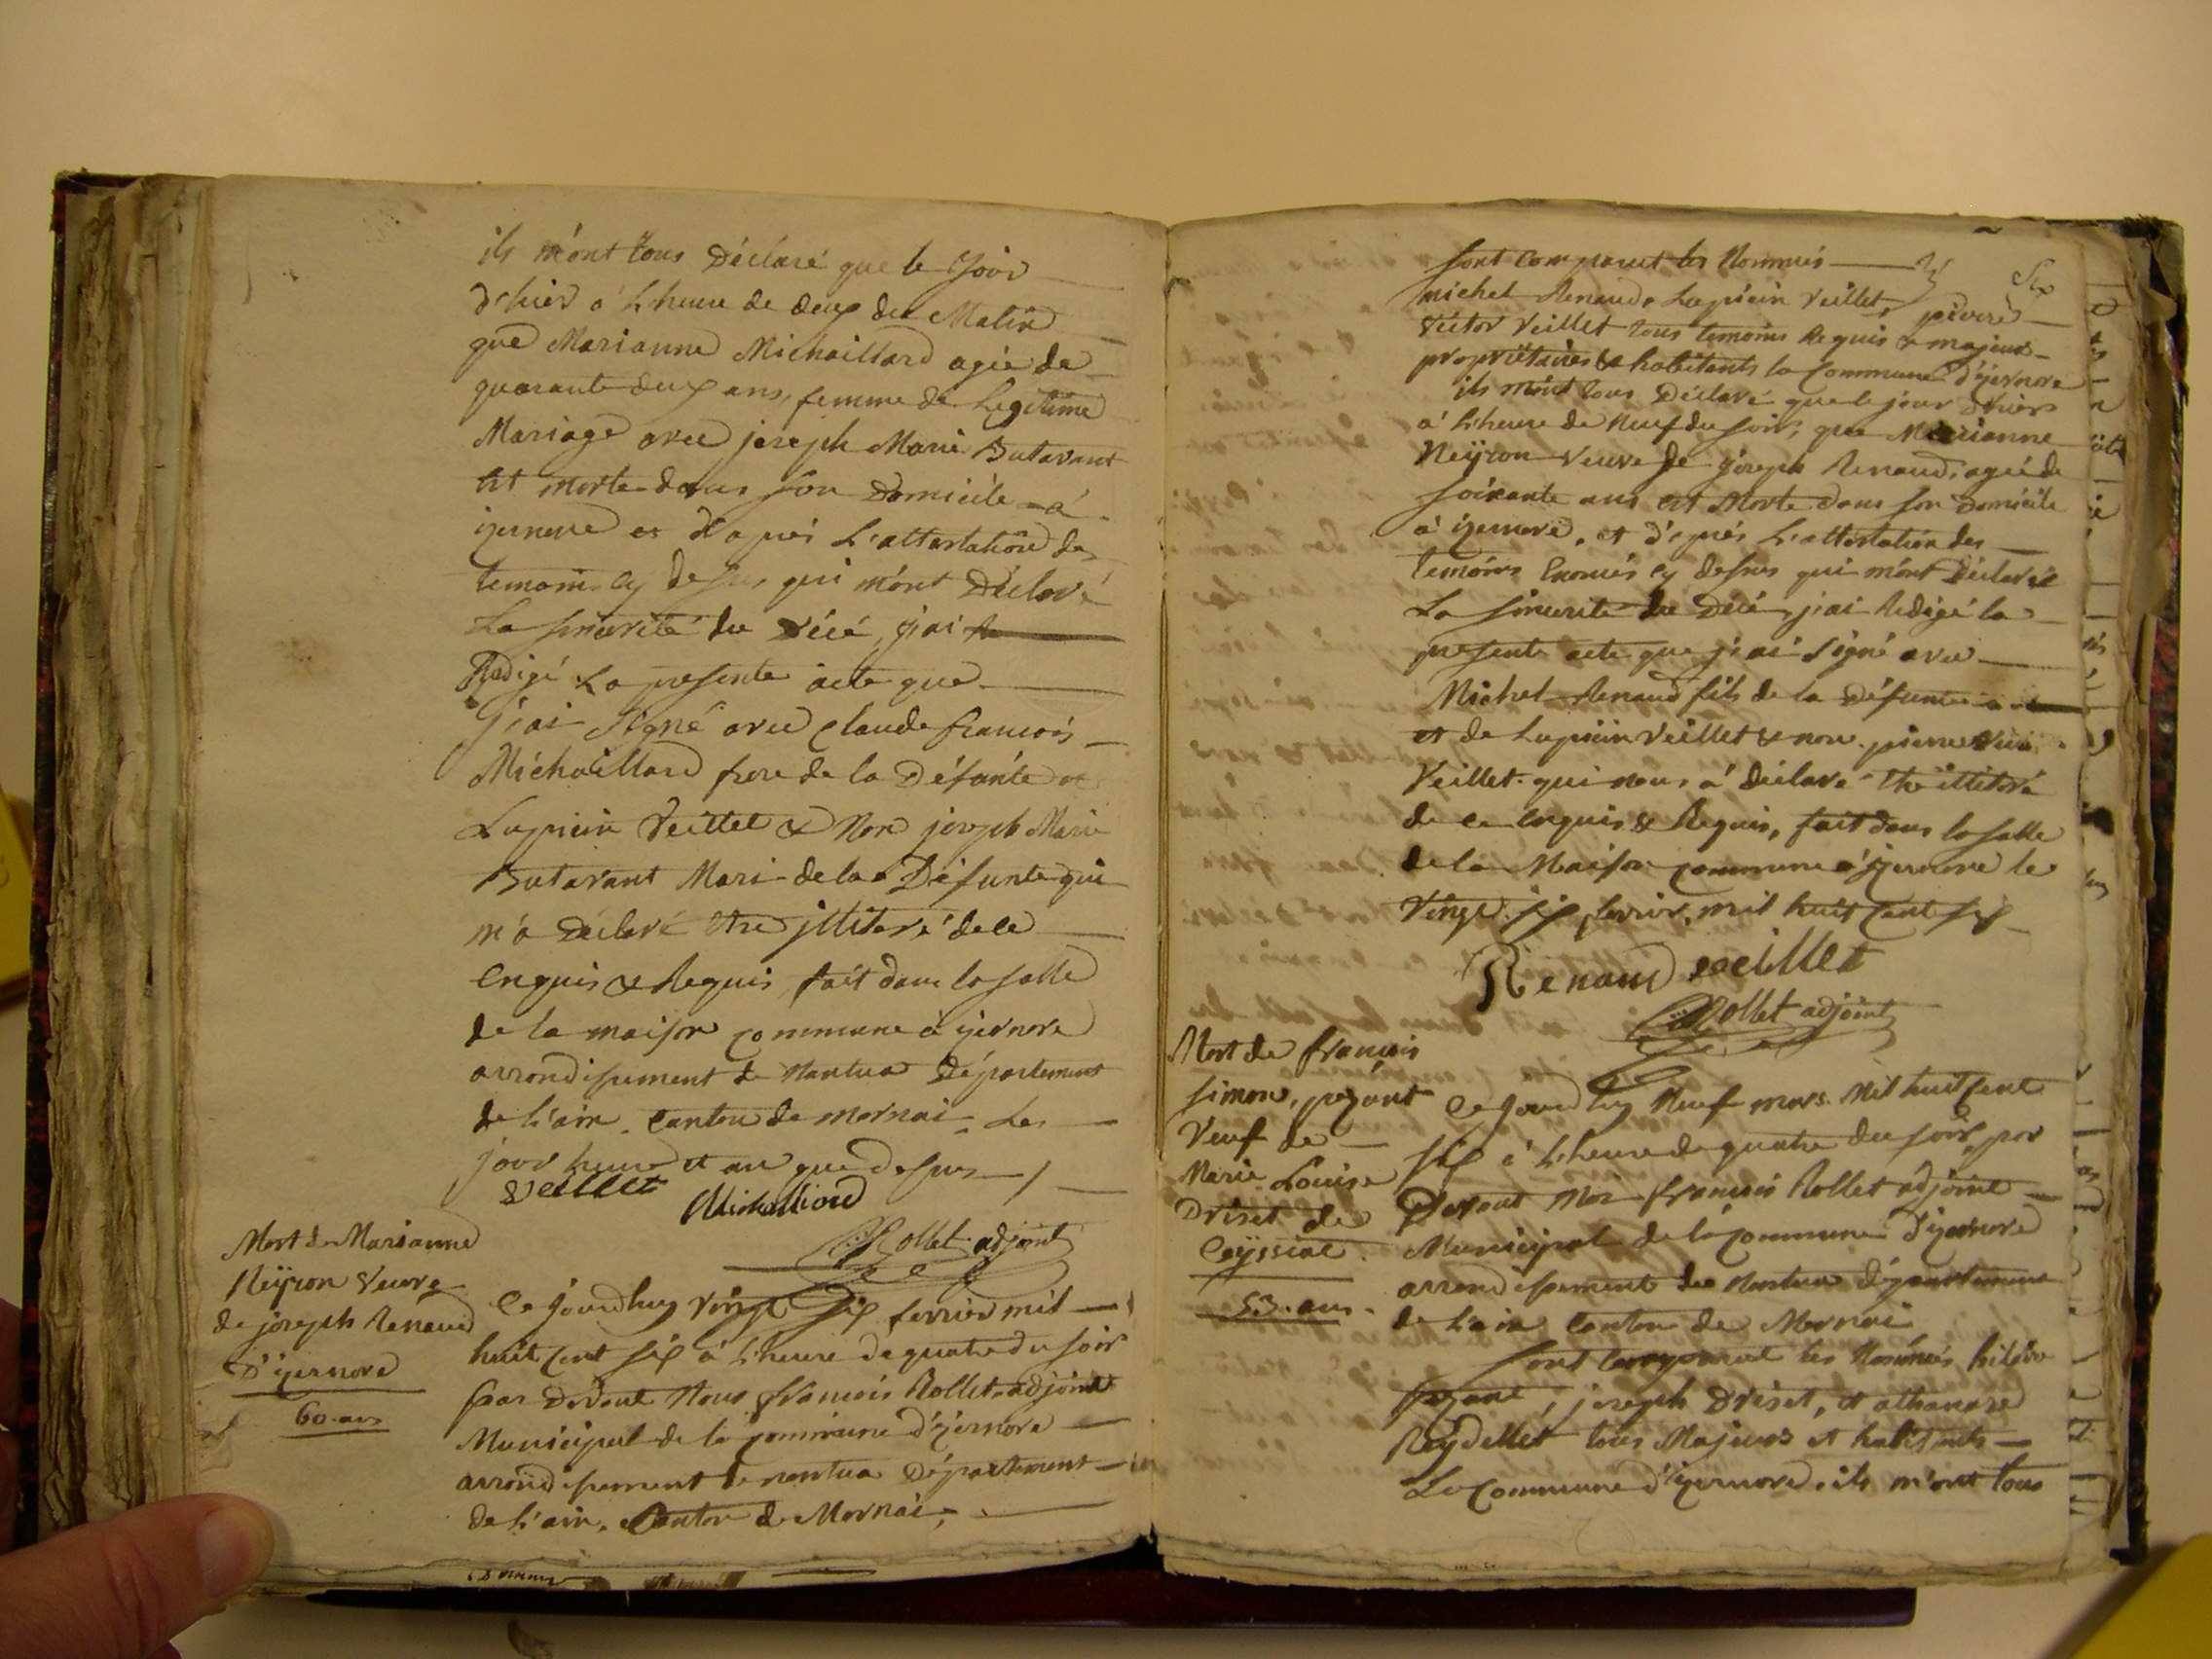 ils m'ont tous Déclaré que le Jour
d'hier à L'heure de deux du Matin
que Marianne Michaillard agée de
quarante deux ans, femme de Legitime
Mariage avec joseph Marie Butavant
est morte dans son Domicile à
izernore et d'après L'attestation des
temoins cy dessus qui m'ont Déclaré
La sincerité du Décé, j'ai
Redigé La presente acte que
j'ai Signé avec Claude francois
Michaillard frere de la Défunte et
Lupicin Veillet & Non joseph Marie
Butavant Mari de la Défunte qui
m'a Déclaré être illiteré de ce
enquis & Requis, fait dans la salle
de la maison commune à izernore
arrondissement de Nantua Département
de l'ain. Canton de mornai. Les
jour heure et an que dessus
Veillet Michaillard
Rollet adjoint
Mort de Marianne
Neÿron Veuve
de joseph Renaud
D'izernore
60 ans
Ce jourdhuy vingt six fevrier mil
huit cent six à L'heure de quatre du soir
par Devant Nous francois Rollet adjoint
Municipal de la commune d'izernore
arrondissement de nantua Département
de l'ain, Canton de Mornai,
Six
sont comparut les Nommés
michel Renaud, Lupicin Veillet, pierre
Victor Veillet tous temoins Requis & majeurs
propriétaires & habitants la Commune d'izernore
ils m'ont tous Déclaré que le jour d'hier
à L'heure de Neuf du soir, que Marianne
Neÿron Veuve de joseph Renaud, agée de
soixante ans est Morte dans son Domicile
à izernore, et d'après L'attestation des
temoins enoncés cy dessus qui m'ont Déclaré
La sincerité du Décé, j'ai Redigé la
presente acte que j'ai signé avec
Michel Renaud fils de la Défunte
et de Lupicin Veillet & non pierre
Veillet qui nous a déclaré être illiteré
de ce enquis & Requis, fait dans la salle
de la Maison commune d'izernore le
Vingt six fevrier, mil huit cent six
Renaud Veillet
Rollet adjoint
Mort de françois
simon, pezant
Veuf de
Marie Louise
Driset de
Ceÿssiat
53 ans
Ce jourdhuy Neuf mars Mil huit cent
six à L'heure de quatre du soir, par
Devant Moi francois Rollet adjoint
Municipal de la commune d'izernore
arrondissement de Nantua département
de L'ain Canton de Mornai
sont comparut les Nommés hilaire
pezant, joseph Driset, et athanase
Reydellet tous Majeurs et habitants
La Commune d'izernore, ils m'ont tous